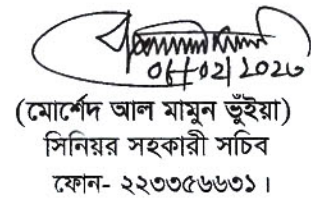 (মোর্শেদ আল মামুন ভুঁইয়া)
সিনিয়র সহকারী সচিব
ফোন- ২২৩৩৫৬৬৩১।